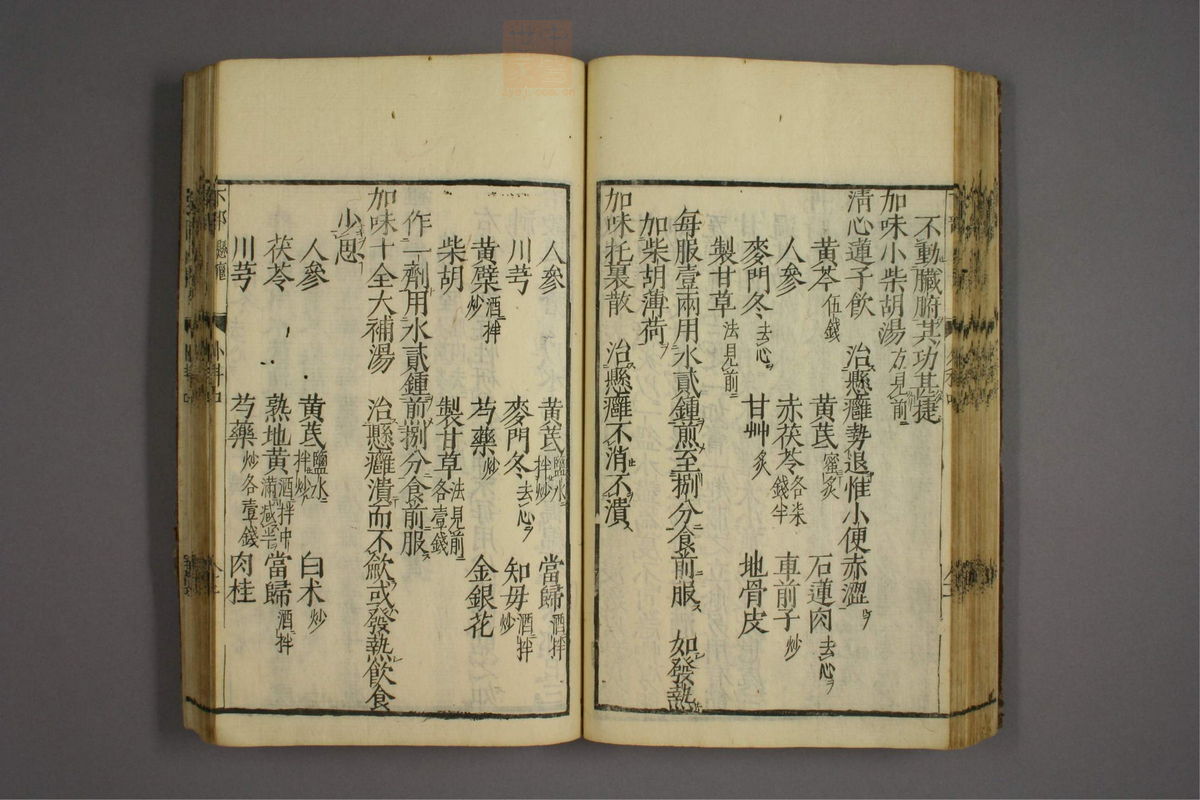 不動臟腑其功甚捷
加味小柴胡湯 方見前
清心蓮子飲 治懸癰勢退惟小便赤澀
黃芩 伍錢 黃芪 蜜炙 石蓮肉 去心
人參 赤茯苓 各柒錢半 車前子 炒
麥門冬 去心 甘艸 炙 地骨皮
製甘草 法見前
每服壹兩用水貳鍾煎至捌分食前服 如發熱
加柴胡薄荷
加味托裏散 治懸癰不消不潰
人參 黃芪 鹽水拌炒 當歸 酒拌
川芎 麥門冬 去心 知毋 酒拌炒
黃蘗 酒拌炒 芍藥 炒 金銀花
柴胡 製甘草 法見前各壹錢
作一劑用水貳鍾前捌分食前服
加味十全大補湯 治懸癰潰而不歛或發熱飲食
少思
人參 黃芪 鹽水拌炒 白术 炒
茯苓 熟地黃 酒拌中滿減半 當歸 酒拌
川芎 芍藥 炒各壹錢 肉桂
下部 懸癰